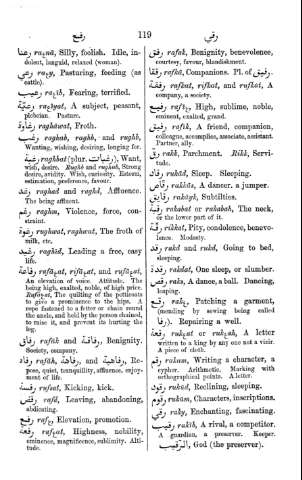 رفيع
119
رقي
رعنا raʿnā, Silly, foolish. Idle, indolent, languid, relaxed (woman).
raʿy, Pasturing, feeding (as cattle).
raʿīb, Fearing, terrified.
رعيّة raʿīyat, A subject, peasant, plebeian. Pasture.
رغاوة raghāwat, Froth.
رغب raghab, raghb, and rughb, Wanting, wishing, desiring, longing for.
رغبة raghbat (plur. رغبات), Want, wish, desire. Rughb and raghab, Strong desire, avidity. Wish, curiosity. Esteem, estimation, preference, favour.
رغد raghad and raghd, Affluence. The being affluent.
رغم raghm, Violence, force, constraint.
رغوة raghwat, rughwat, The froth of milk, etc.
رغيد raghīd, Leading a free, easy life.
رفاعة rafāʿat, rifāʿat, and rufāʿat, An elevation of voice. Altitude. The being high, exalted, noble, of high price. Rufāʿat, The quilting of the petticoats to give a prominence to the hips. A rope fastened to a fetter or chain round the ancle, and held by the person chained, to raise it, and prevent its hurting the leg.
رفاق rafāk and رفاقة, Benignity. Society, company.
رفاه rafāh, رفاهة, and رفاهية, Repose, quiet, tranquillity, affluence, enjoyment of life.
رفسة rafsat, Kicking, kick.
رفض rafd, Leaving, abandoning, abdicating.
رفع rafʿ, Elevation, promotion.
رفعة rafʿat, Highness, nobility, eminence, magnificence, sublimity. Altitude.
رفق rafak, Benignity, benevolence, courtesy, favour, blandishment.
رفقا rafkā, Companions. Pl. of رفيق.
رفقة rafkat, rifkat, and rufkat, A company, a society.
رفيع rafīʿ, High, sublime, noble, eminent, exalted, grand.
رفيق rafīk, A friend, companion, colleague, accomplice, associate, assistant. Partner, ally.
رق rakk, Parchment. Rikk, Servitude.
رقاد rukād, Sleep. Sleeping.
رقاص rakkās, A dancer. a jumper.
رقايق rakāyk, Subtilties.
رقبة rakabat or rakabah, The neck, or the lower part of it.
رقة rikkat, Pity, condolence, benevolence. Modesty.
رقد rakd and rukd, Going to bed, sleeping.
رقدة rakdat, One sleep, or slumber.
رقص raks, A dance, a ball. Dancing, leaping.
رقع rakʿ, Patching a garment, (mending by sewing being called رفا). Repairing a well.
رقعة rukʿat or rukʿah, A letter written to a king by any one not a vizir. A piece of cloth.
رقم rakam, Writing a character, a cypher. Arithmetic. Marking with orthographical points. A letter.
رقود rukūd, Reclining, sleeping.
رقوم rukūm, Characters, inscriptions.
رقي raky, Enchanting, fascinating.
رقيب rakīb, A rival, a competitor. A guardian, a preserver. Keeper.
الرقيب, God (the preserver).